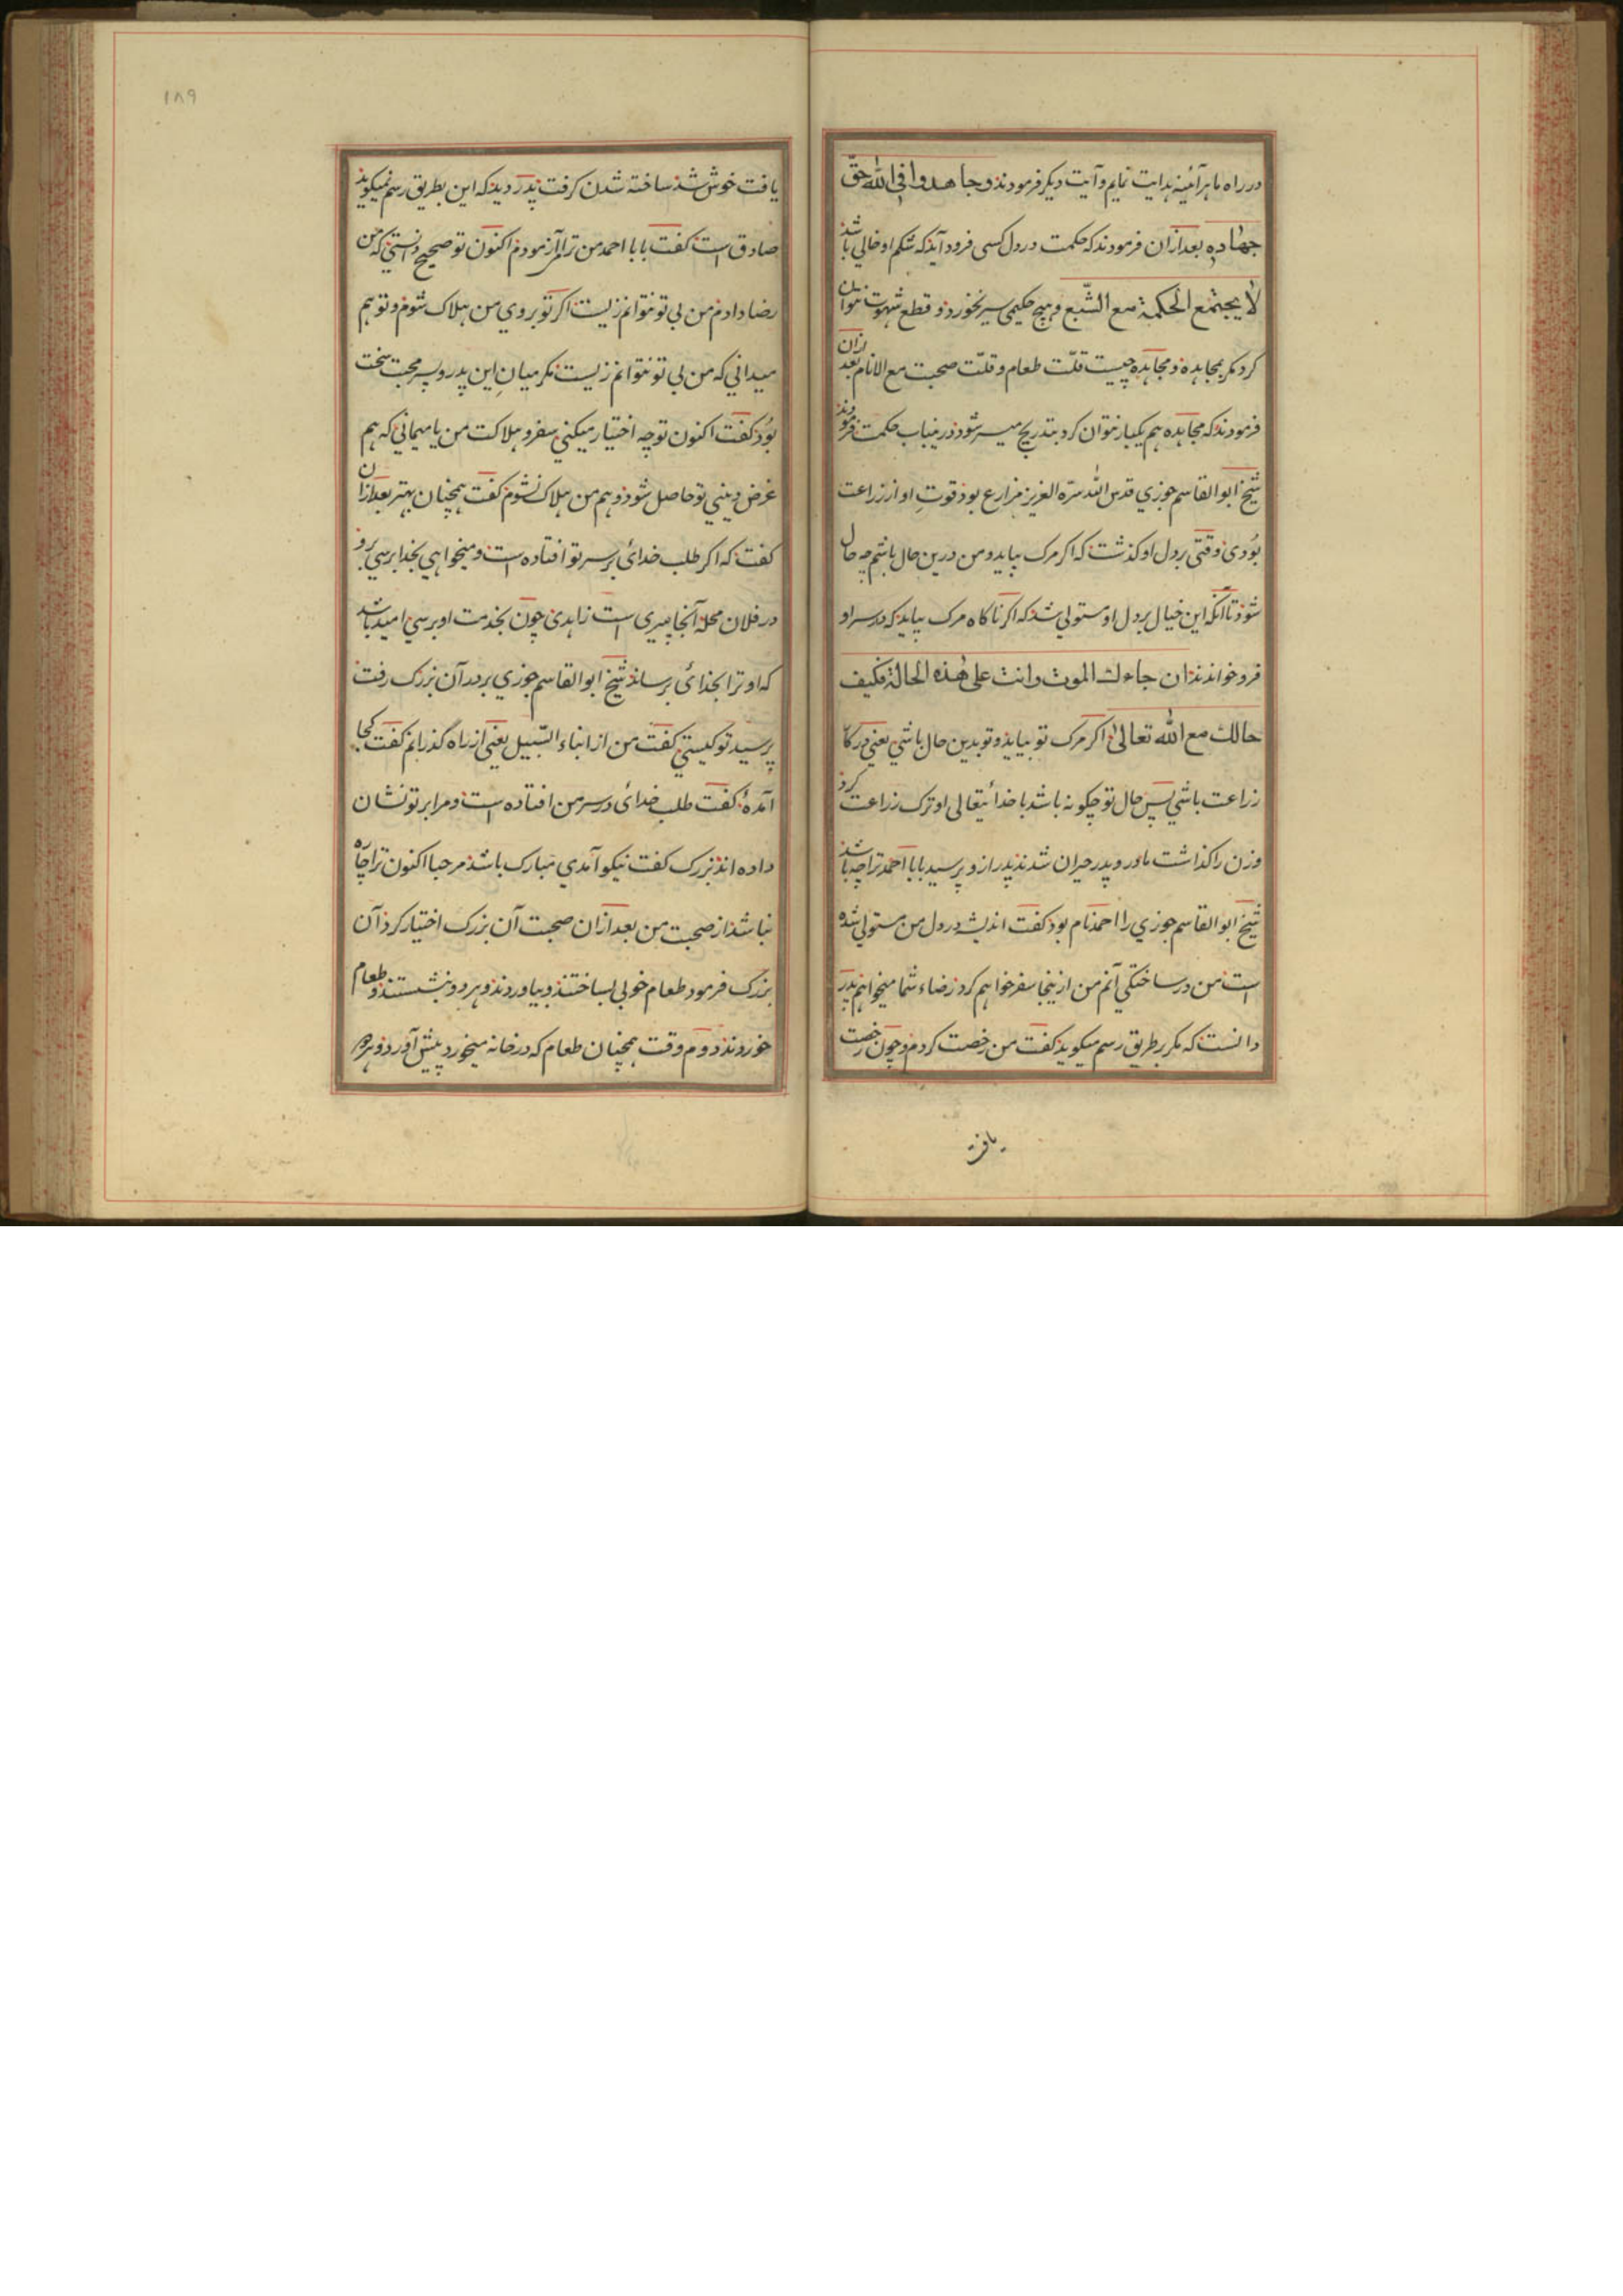 در راه ما هرآئینه هدایت نمایم و آیت دیگر فرمودند وجاهدوا فی اللّٰه حقّ
جهاده بعد ازان فرمودند که حکمت در دل کسی فرود آیذ که شکم او خالی باشذ
لا یجتمع الحکمة مع الشّبع و هیچ حکیمی سیر نخوردذ و قطع شهوت نتوان
کرد مگر بمجاهده و مجاهده چیست قلّت طعام و قلّت صحبت مع الانام بعد ازان
فرمودند که مجاهده هم یکبار نتوان کرد بتدریج میسر شوذ درینباب حکمت فرمودند
شیخ ابو القاسم جوزي قدس اللّٰه سرّه العزیز مزارع بوذ قوتِ او از زراعت
بُودی وقتی بر دل او کذشت که اکر مرک بیاید و من درین حال باشم چه حال
شوذ تا آنکه این خیال بر دل او مستولي شذ که اکر ناکاه مرک بیاید که در سر او
فرو خواندند ان جاءك الموت وانت علی هٰذه الحالة فکیف
حالك مع اللّٰه تعالیٰ اکر مرک تو بیایذ و تو بدین حال باشي یعني در کار
زراعت باشي پس حال تو چکونه باشد با خدائیتعالی او ترک زراعت کرد
و زن را کذاشت مادر و پدر حیران شدند پدر ازو پرسید بابا احمد ترا چه باشذ
شیخ ابو القاسم جوزي را احمد نام بود کفت اندیشه در دل من مستولي شده
است من در ساختکي آنم من از ینجا سفر خواهم کرد رضاء شما میخواهم پدر
دانست که مکر بر طریق رسم میکوید کفت من رخصت کردم و چون رخصت
یافت
۱۸۹
یافت خوش شذ ساخته شدن کرفت پدر دید که این بطریق رسم نمیکوید
صادق است کفت بابا احمد من ترا مر آزمودم اکنون تو صحیح دانستي که من
رضا دادم من بی تو نتوانم زیست اکر تو بروي من هلاک شوم و تو هم
میداني که من بی تو نتوانم زیست مکر میانِ این پدر و پسر محبت سخت
بُوذ کفت اکنون تو چه اختیار میکني سفر و هلاکت من یا میماني که هم
غرض دیني تو حاصل شوذ و هم من هلاک نشوم کفت همچنان بهتر بعد ازان
کفت که اکر طلب خدائی بر سر تو افتاده است و میخواهي بخدا برسي برو
در فلان محله آنجا پیری است زاهدی چون بخدمت او برسي امید باشد
که او ترا بخدائی برساند شیخ ابو القاسم جوزي بر در آن بزرک رفت
پرسید تو کیستي کفت من از ابناء السّبیل یعني از راه گذرانم کفت کجا
آمدهٔ کفت طلب خدائی در سر من افتاده است و مرا بر تو نشان
داده اند بزرک کفت نیکو آمدي مبارک باشد مرحبا اکنون ترا چاره
نباشد از صحبت من بعد ازان صحبت آن بزرک اختیار کرد آن
بزرک فرمود طعام خوبی بساختند و بیاوردند و هر دو بنشستند و طعام
خوردند دوم وقت همچنان طعام که در خانه میخورد پیش آورد و هر دو